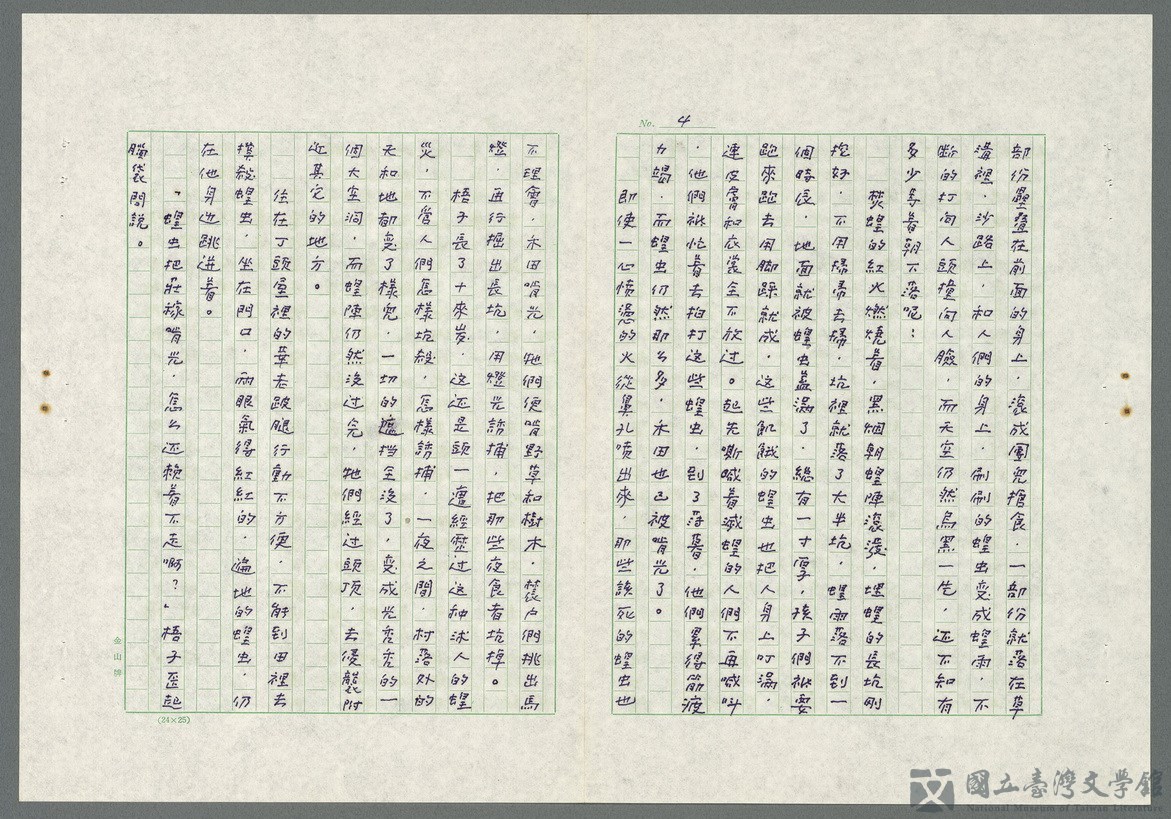 No. 4
部份壘疊在前面的身上，滾成團兒搶食，一部份就落在草
溝裡，沙路上，和人們的身上，刷刷的蝗虫变成蝗雨，不
断的打向人頭撞向人臉，而天空仍然烏黑一片，还不知有
多少等着朝下落呢；
焚蝗的紅火燃燒着，黑烟朝蝗陣滾潑，埋蝗的長坑剛
挖好，不用掃帚去掃，坑裡就落了大半坑，蝗雨落不到一
個時辰，地面就被蝗虫蓋滿了，總有一寸厚，孩子們祇要
跑來跑去用脚踩就成，这些飢餓的蝗虫也把人身上叮滿，
連皮膚和衣裳全不放过。起先嘶喊着滅蝗的人們不再喊叫
，他們祇忙着去拍打这些蝗虫，到了薄暮，他們累得筋疲
力竭，而蝗虫仍然那么多，禾田也已被啃光了。
即使一心憤懣的火從鼻孔喷出來，那些該死的蝗虫也
不理會，禾田啃光，牠們便啃野草和樹木，莊户們挑出馬
燈，再行掘出長坑，用燈光誘捕，把那些夜食者坑掉。
梧子長了十來岁，这还是頭一遭經歷过这种沭人的蝗
災，不管人們怎樣坑殺，怎樣誘捕，一夜之間，村落外的
天和地都变了樣兒，一切的遮挡全沒了，变成光秃秃的一
個大空洞，而蝗陣仍然沒过完，牠們經过頭頂，去侵襲附
近其它的地方。
住在丁頭屋裡的韋老跛腿行動不方便，不能到田裡去
撲殺蝗虫，坐在門口，兩眼氣得紅紅的，遍地的蝗虫，仍
在他身边跳迸着。
「蝗虫把莊稼啃光，怎么还賴着不走啊？」梧子歪起
腦袋問說。
金山牌
(24×25)
國立臺灣文学館
National Museum of Taiwan Literature